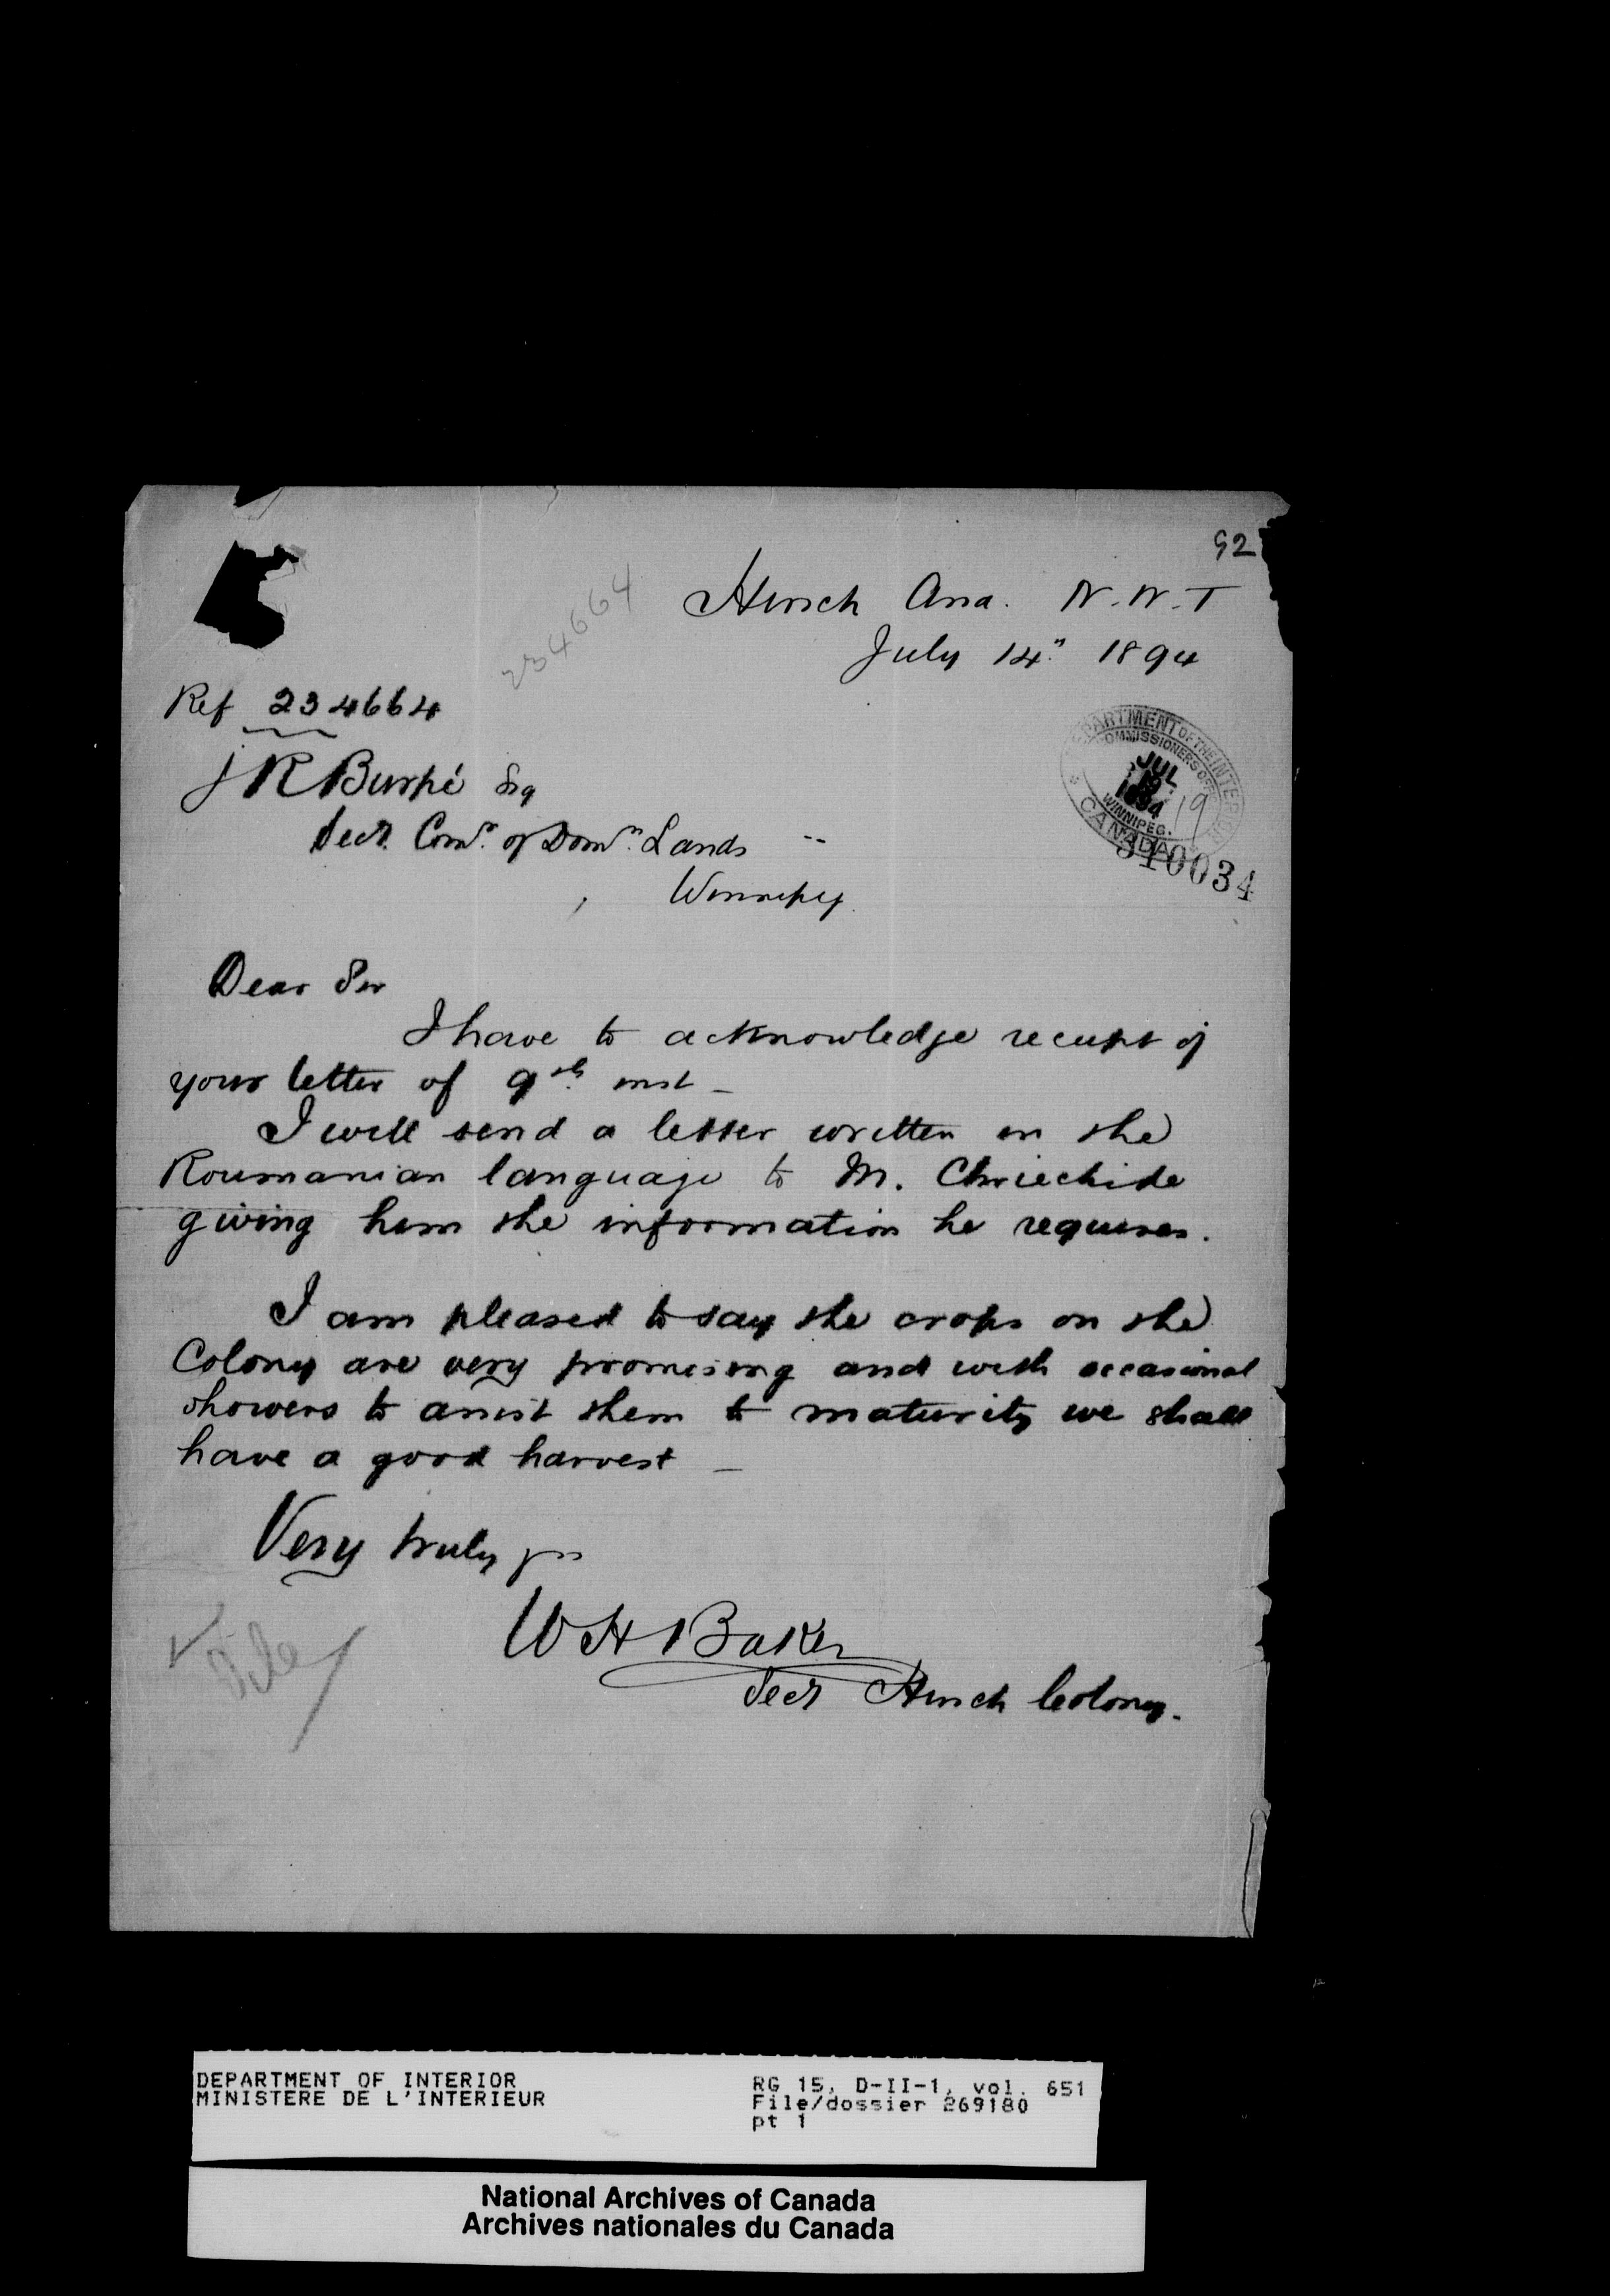 92
Hirsch Assa. N.W.T
July 14" 1894
234664
Ref 234664
J R Burpé Esq
Secy. Comr. of Domn. Lands
Winnipeg.
DEPARTMENT OF THE INTERIOR
COMMISSIONERS OFFICE
JUL
19
1894
19
WINNIPEG.
CANADA
310034
Dear Sir
I have to acknowledge receipt of
your letter of 9th. inst -
I will send a letter written in the
Roumanian language to M.
giving him the information he requires.
I am pleased to say the crops on the
Colony are very promising and with occasional
showers to assist them to maturity we shall
have a good harvest -
Very truly yrs
W H Baker
Secy Hirsch Colony.
File
DEPARTMENT OF INTERIOR
MINISTERE DE L'INTERIEUR
RG 15, D-II-1, vol. 651
File/dossier 269180
pt 1
National Archives of Canada
Archives nationales du Canada